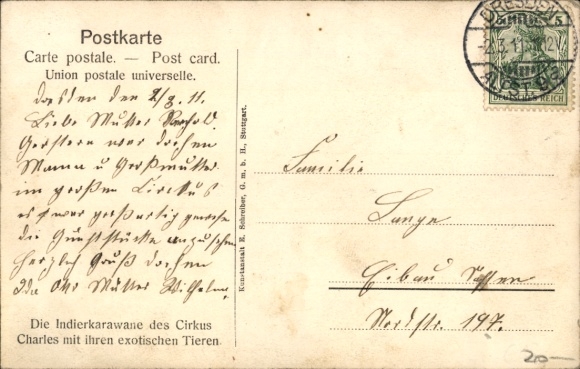 Postkarte
Carte postale. — Post card.
Union postale universelle.
Dresden den 2/3. 11.
Liebe Mutter
Gestern war
Mama u Großmutter
im großen Circus
es war großartig gewesen
die Kunststücke anzusehen
herzlich Gruß
Otto Mutter Wilhelm.
Die Indierkarawane des Cirkus
Charles mit ihren exotischen Tieren
Kunstanstalt E. Schreiber, G. m. b. H., Stuttgart.
DRESDEN
-2.3.11
ALTST.
5 5
DEUTSCHES REICH
Familie
Lange
Eibau Sachsen
Nordstr. 197.
20-